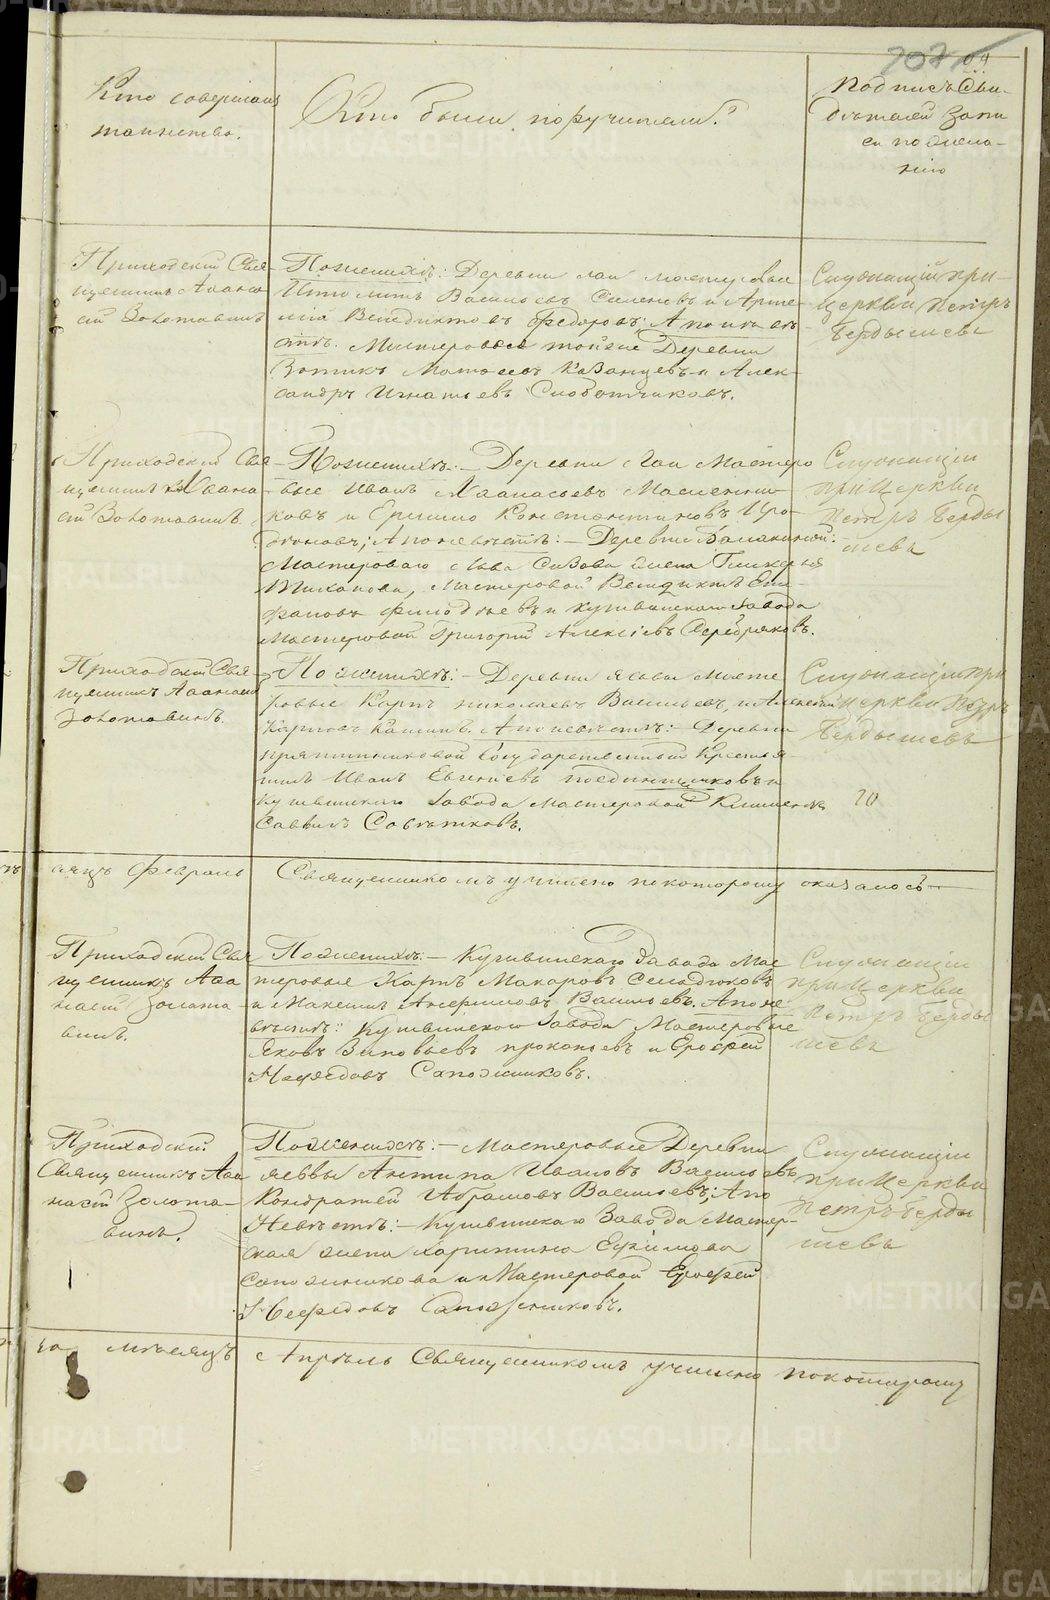 707 04
Кто совершалъ
таинство.
Кто были поручители?
Подписъ Сви-
дѣтелей запи
си по жела-
нію
Приходскій Свя-
щенникъ Аѳана-
сій Золотавинъ
По женихѣ: Деревни Лаи мастеровые
Ипполитъ Васильевъ Силеневъ и Арте-
мій Венедиктовъ Федоровъ; А по невѣ
стѣ. Мастеровые тойже Деревни
Зотикъ Матвеевъ Казанцевъ и Алек-
сандръ Игнатьевъ Слободчиковъ.
Служащій при
церкви Петръ
Бердышевъ
Приходскій Свя-
щенникъ Аѳана-
сій Золотавинъ.
По женихѣ: - Деревни Лаи Мастеро
вые Иванъ Аѳанасьевъ Масленни-
ковъ и Константиновъ
А по невѣстѣ: - Деревни Балакиной:
Мастероваго жена Гликерья
Тиханова, мастеровой Венидиктъ Епи-
фановъ и кушвинскаго Завода
Мастеровой Григорій Алексѣевъ Серебряковъ.
Служащій
при Церкви
Петръ Берды
шевъ
Приходскій Свя-
щенникъ Аѳанасій
Золотавинъ.
По женихѣ: - Деревни Масте
ровые Карпъ Николаевъ Васильевъ, и Алексей
Карповъ А по невѣстѣ: - Деревни
Государственный Крестья
нинъ Иванъ Евгеніевъ и
Кушвинскаго Завода мастеровой
Саввинъ
Служащій при
церкви Петръ
Бердышевъ
20
сяцъ Февраль Священникомъ учинено по которому оказалось
Приходскій Свя
щенникъ Аѳа
насій Золота
винъ.
По женихѣ: - Кушвинскаго Завода Мас
теровые Карпъ Макаровъ
и Максимъ Васильевъ. А по не
вѣстѣ: Кушвинского Завода Мастеровые
Яковъ Зиновьевъ Прокопьевъ и Ерофей
Сапожниковъ.
Служащій
при Церкви
Петръ Берды
шевъ
Приходскій
Священникъ Аѳа
насій Золота-
винъ.
По женихѣ: - Мастеровые Деревни
Антипа Ивановъ Васильевъ
Кондратей Абрамовъ Васильевъ; А по
Невѣстѣ: - Кушвинскаго Завода Мастер-
ская жена Харитина Ефимова
Сапожникова и Мастеровой Ерофей
Сапожниковъ.
Служащій
при Церкви
Петръ Берды
шевъ
за мѣсяцъ Апрѣль Священникомъ учинено по которому
METRIKI.GASO-URAL.RU